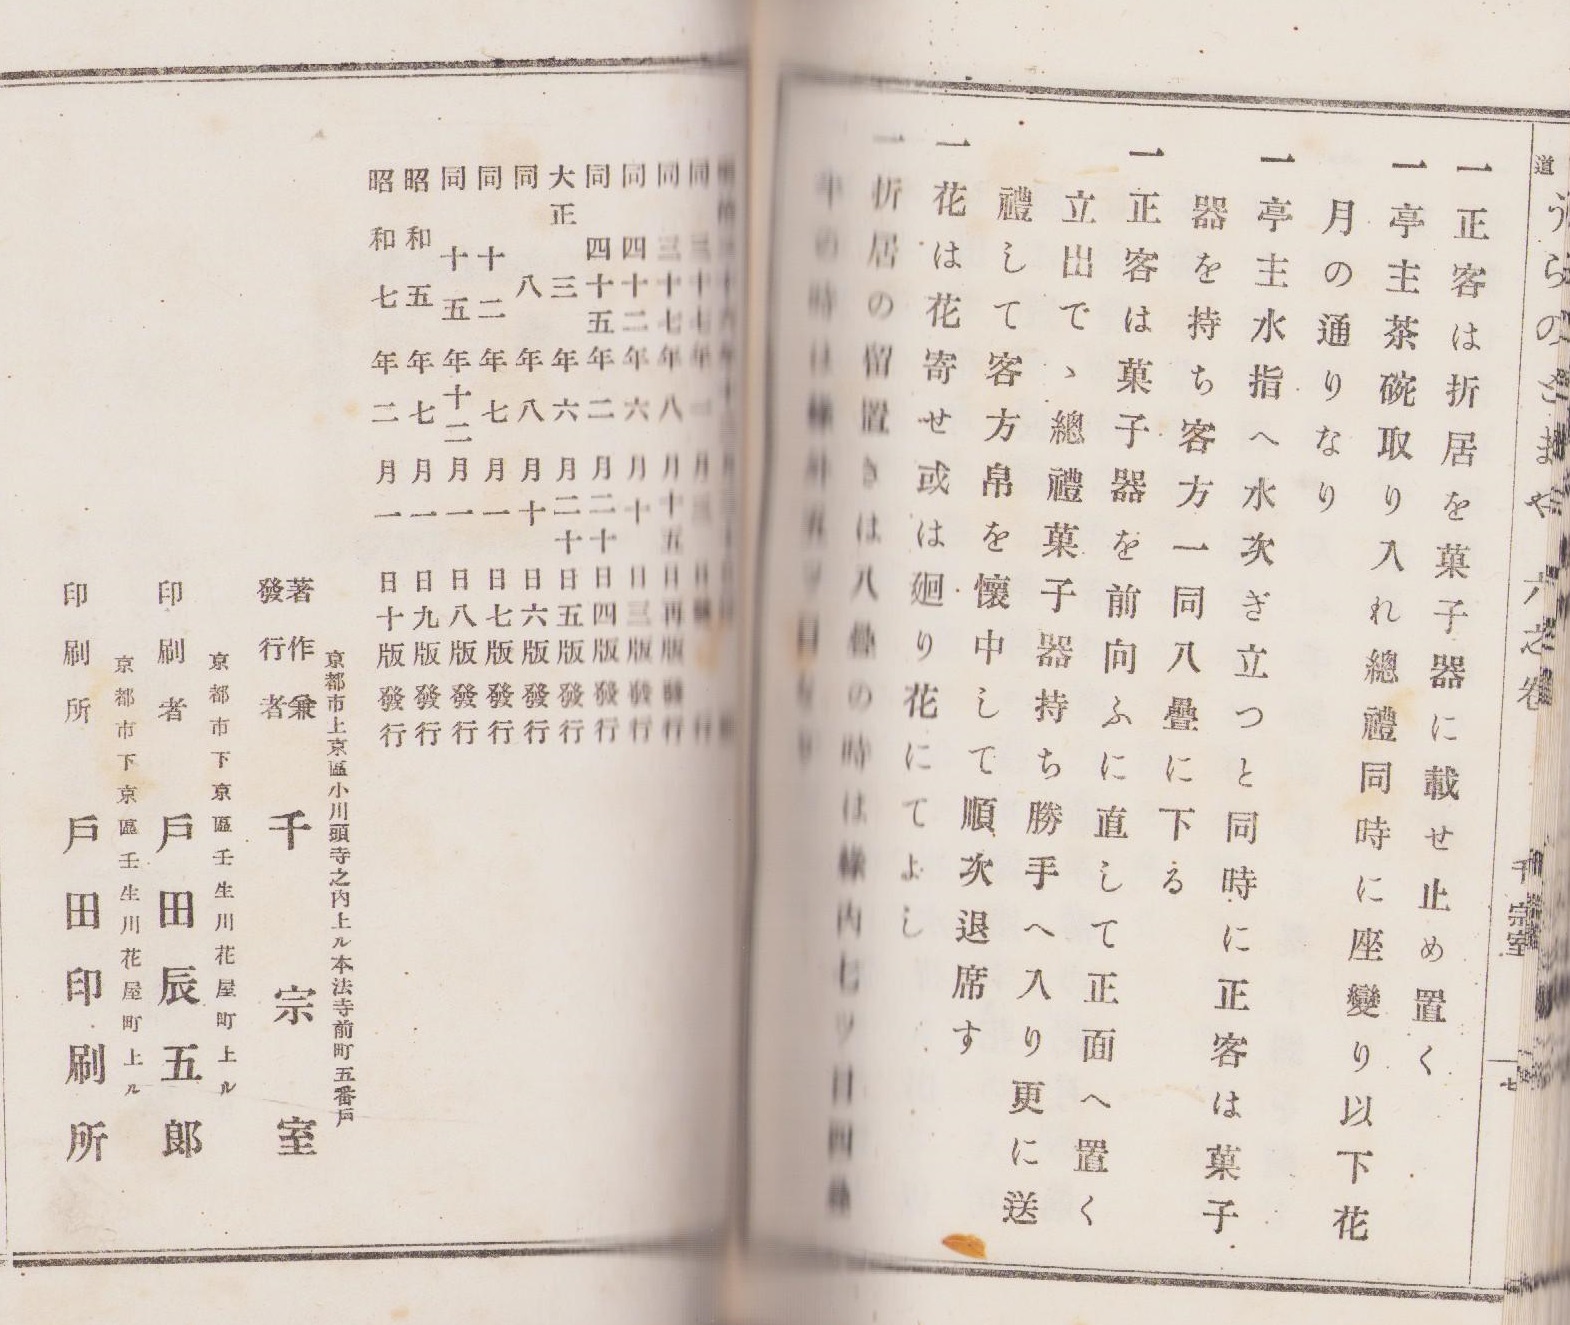 道
うらのとまや 六之卷
千宗室
一七
一正客は折居を菓子器に載せ止め置く
一亭主茶碗取り入れ總禮同時に座變り以下花
月の通りなり
一亭主水指へ水次ぎ立つと同時に正客は菓子
器を持ち客方一同八疊に下る
一正客は菓子器を前向ふに直して正面へ置く
立出で丶總禮菓子器持ち勝手へ入り更に送
禮して客方帛を懷中して順次退席す
一花は花寄せ或は廻り花にてよし
一折居の留置きは八疊の時は椽内七ツ目四疊
半の時は椽外五ツ目なり
同 三十七年八月十五日再版發行
同 四十二年六月十日三版發行
同 四十五年二月二十日四版發行
大正三年六月二十日五版發行
同 八年八月十日六版發行
同 十二年七月一日七版發行
同 十五年十二月一日八版發行
昭和五年七月一日九版發行
昭和七年二月一日十版發行
京都市上京區小川頭寺之内上ル本法寺前町五番戸
著作兼
發行者 千宗室
京都市下京區壬生川花屋町上ル
印刷者 戸田辰五郎
京都市下京區壬生川花屋町上ル
印刷所 戸田印刷所